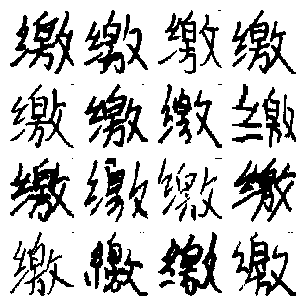 缴缴缴缴
缴缴缴缴
缴缴缴缴
缴缴缴缴